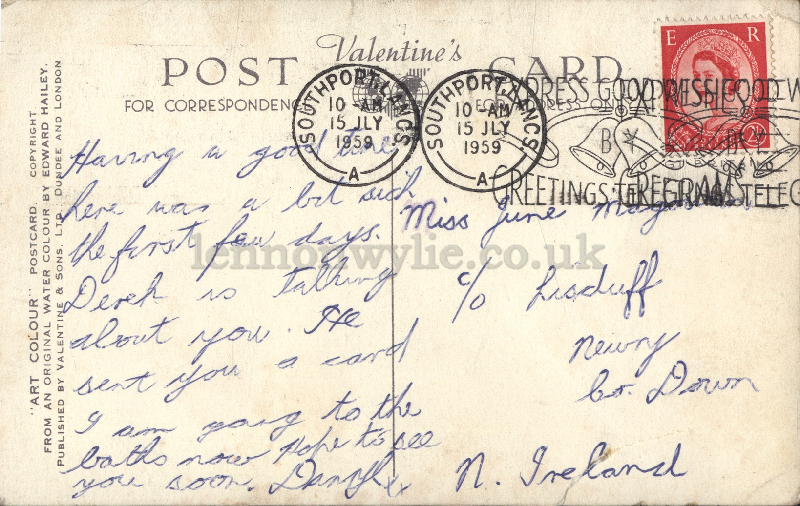 Valentine's
POST CARD
FOR CORRESPONDENCE
FOR ADDRESS ONLY
"ART COLOUR" POSTCARD. COPYRIGHT
FROM AN ORIGINAL WATER COLOUR BY EDWARD HAILEY.
PUBLISHED BY VALENTINE & SONS, LTD., DUNDEE AND LONDON
SOUTHPORT, LANCS
10 - AM
15 JLY
1959
A
SOUTHPORT, LANCS
10 - AM
15 JLY
1959
A
E R
EXPRESS GOOD WISHES
BY
GREETINGS TELEGRAMS
Having a good time
here was a bit sick
the first few days.
Derek is talking
about you. He
sent you a card
I am going to the
baths now Hope to see
you soon.
Miss June
c/o Lisduff
Newry
Co. Down
N. Ireland
lennonwylie.co.uk